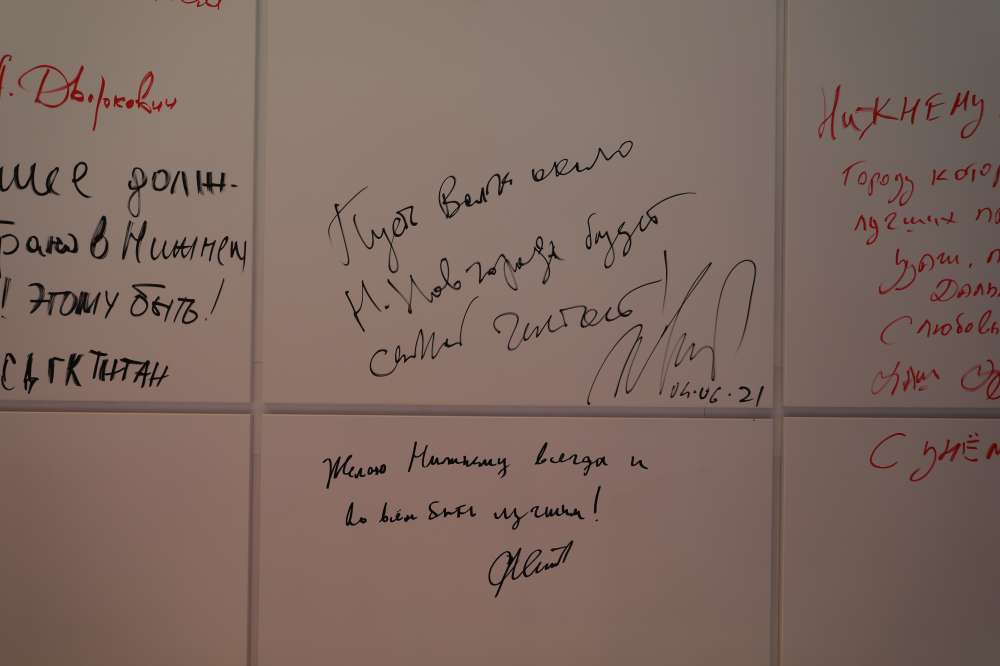 Дворкович
шее долж-
в Нижнем
! Этому быть!
СД ГК ТИТАН
Пусть Волга около
Н. Новгорода будет
самой чистой!
04.06.21
Желаю Нижнему всегда и
во всём быть лучшим!
Нижнему
Городу котор
лучших
С любовь
С днём